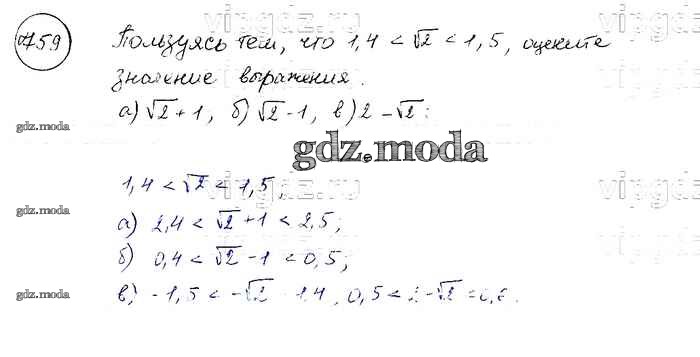 759 Пользуясь тем, что 1,4 < √2 < 1,5, оцените
значение выражения.
а) √2 + 1, б) √2 - 1, в) 2 - √2:
gdz.moda
gdz.moda
vipgdz.ru
1,4 < √2 < 1,5,
gdz.moda
а) 2,4 < √2 + 1 < 2,5;
б) 0,4 < √2 - 1 < 0,5;
gdz.moda
в) -1,5 < -√2 -1,4, 0,5 < 2 - √2